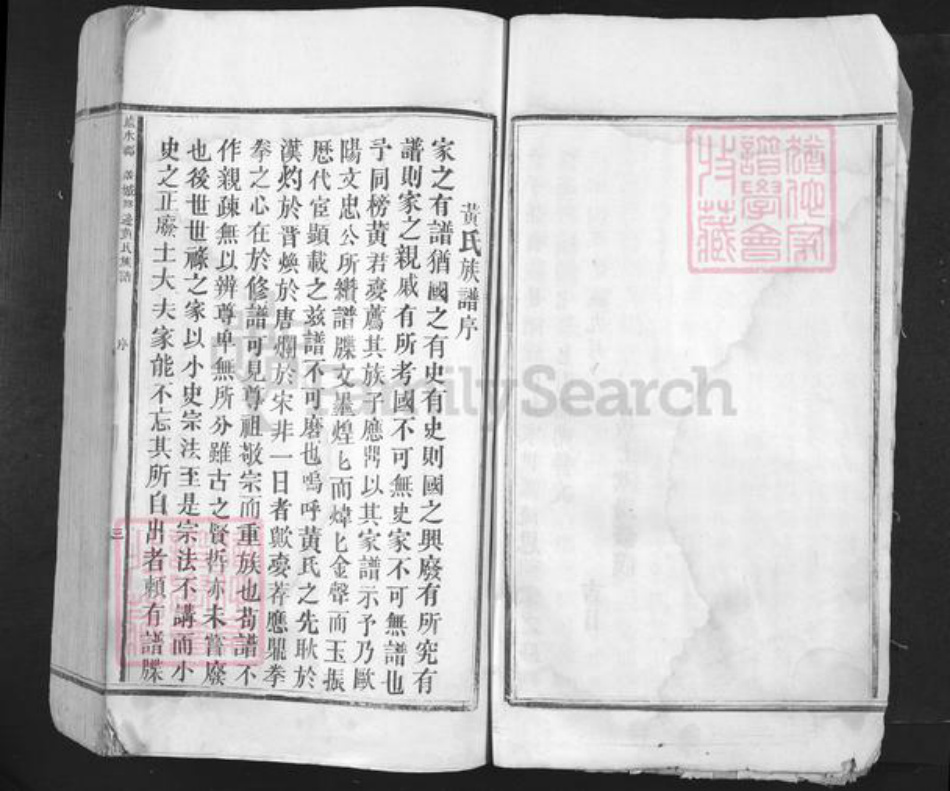 黃氏族譜序
家之有譜猶國之有史有史則國之興廢有所究有
譜則家之親戚有所考國不可無史家不可無譜也
予同榜黃君夌薦其族子應鼎以其家譜示予乃歐
陽文忠公所纘譜牒文墨煌匕而煒匕金聲而玉振
歷代宦顯載之兹譜不可磨也嗚呼黃氏之先耿於
漢灼於晋煥於唐爛於宋非一日者歟夌荐應鼎拳
拳之心在於修譜可見尊祖敬宗而重族也苟譜不
作親疎無以辨尊卑無所分雖古之賢哲亦未嘗廢
也後世世祿之家以小史宗法至是宗法不講而小
史之正廢士大夫家能不忘其所自出者頼有譜牒
黃氏族譜
序
三
猶他家
譜學會
收藏
FamilySearch